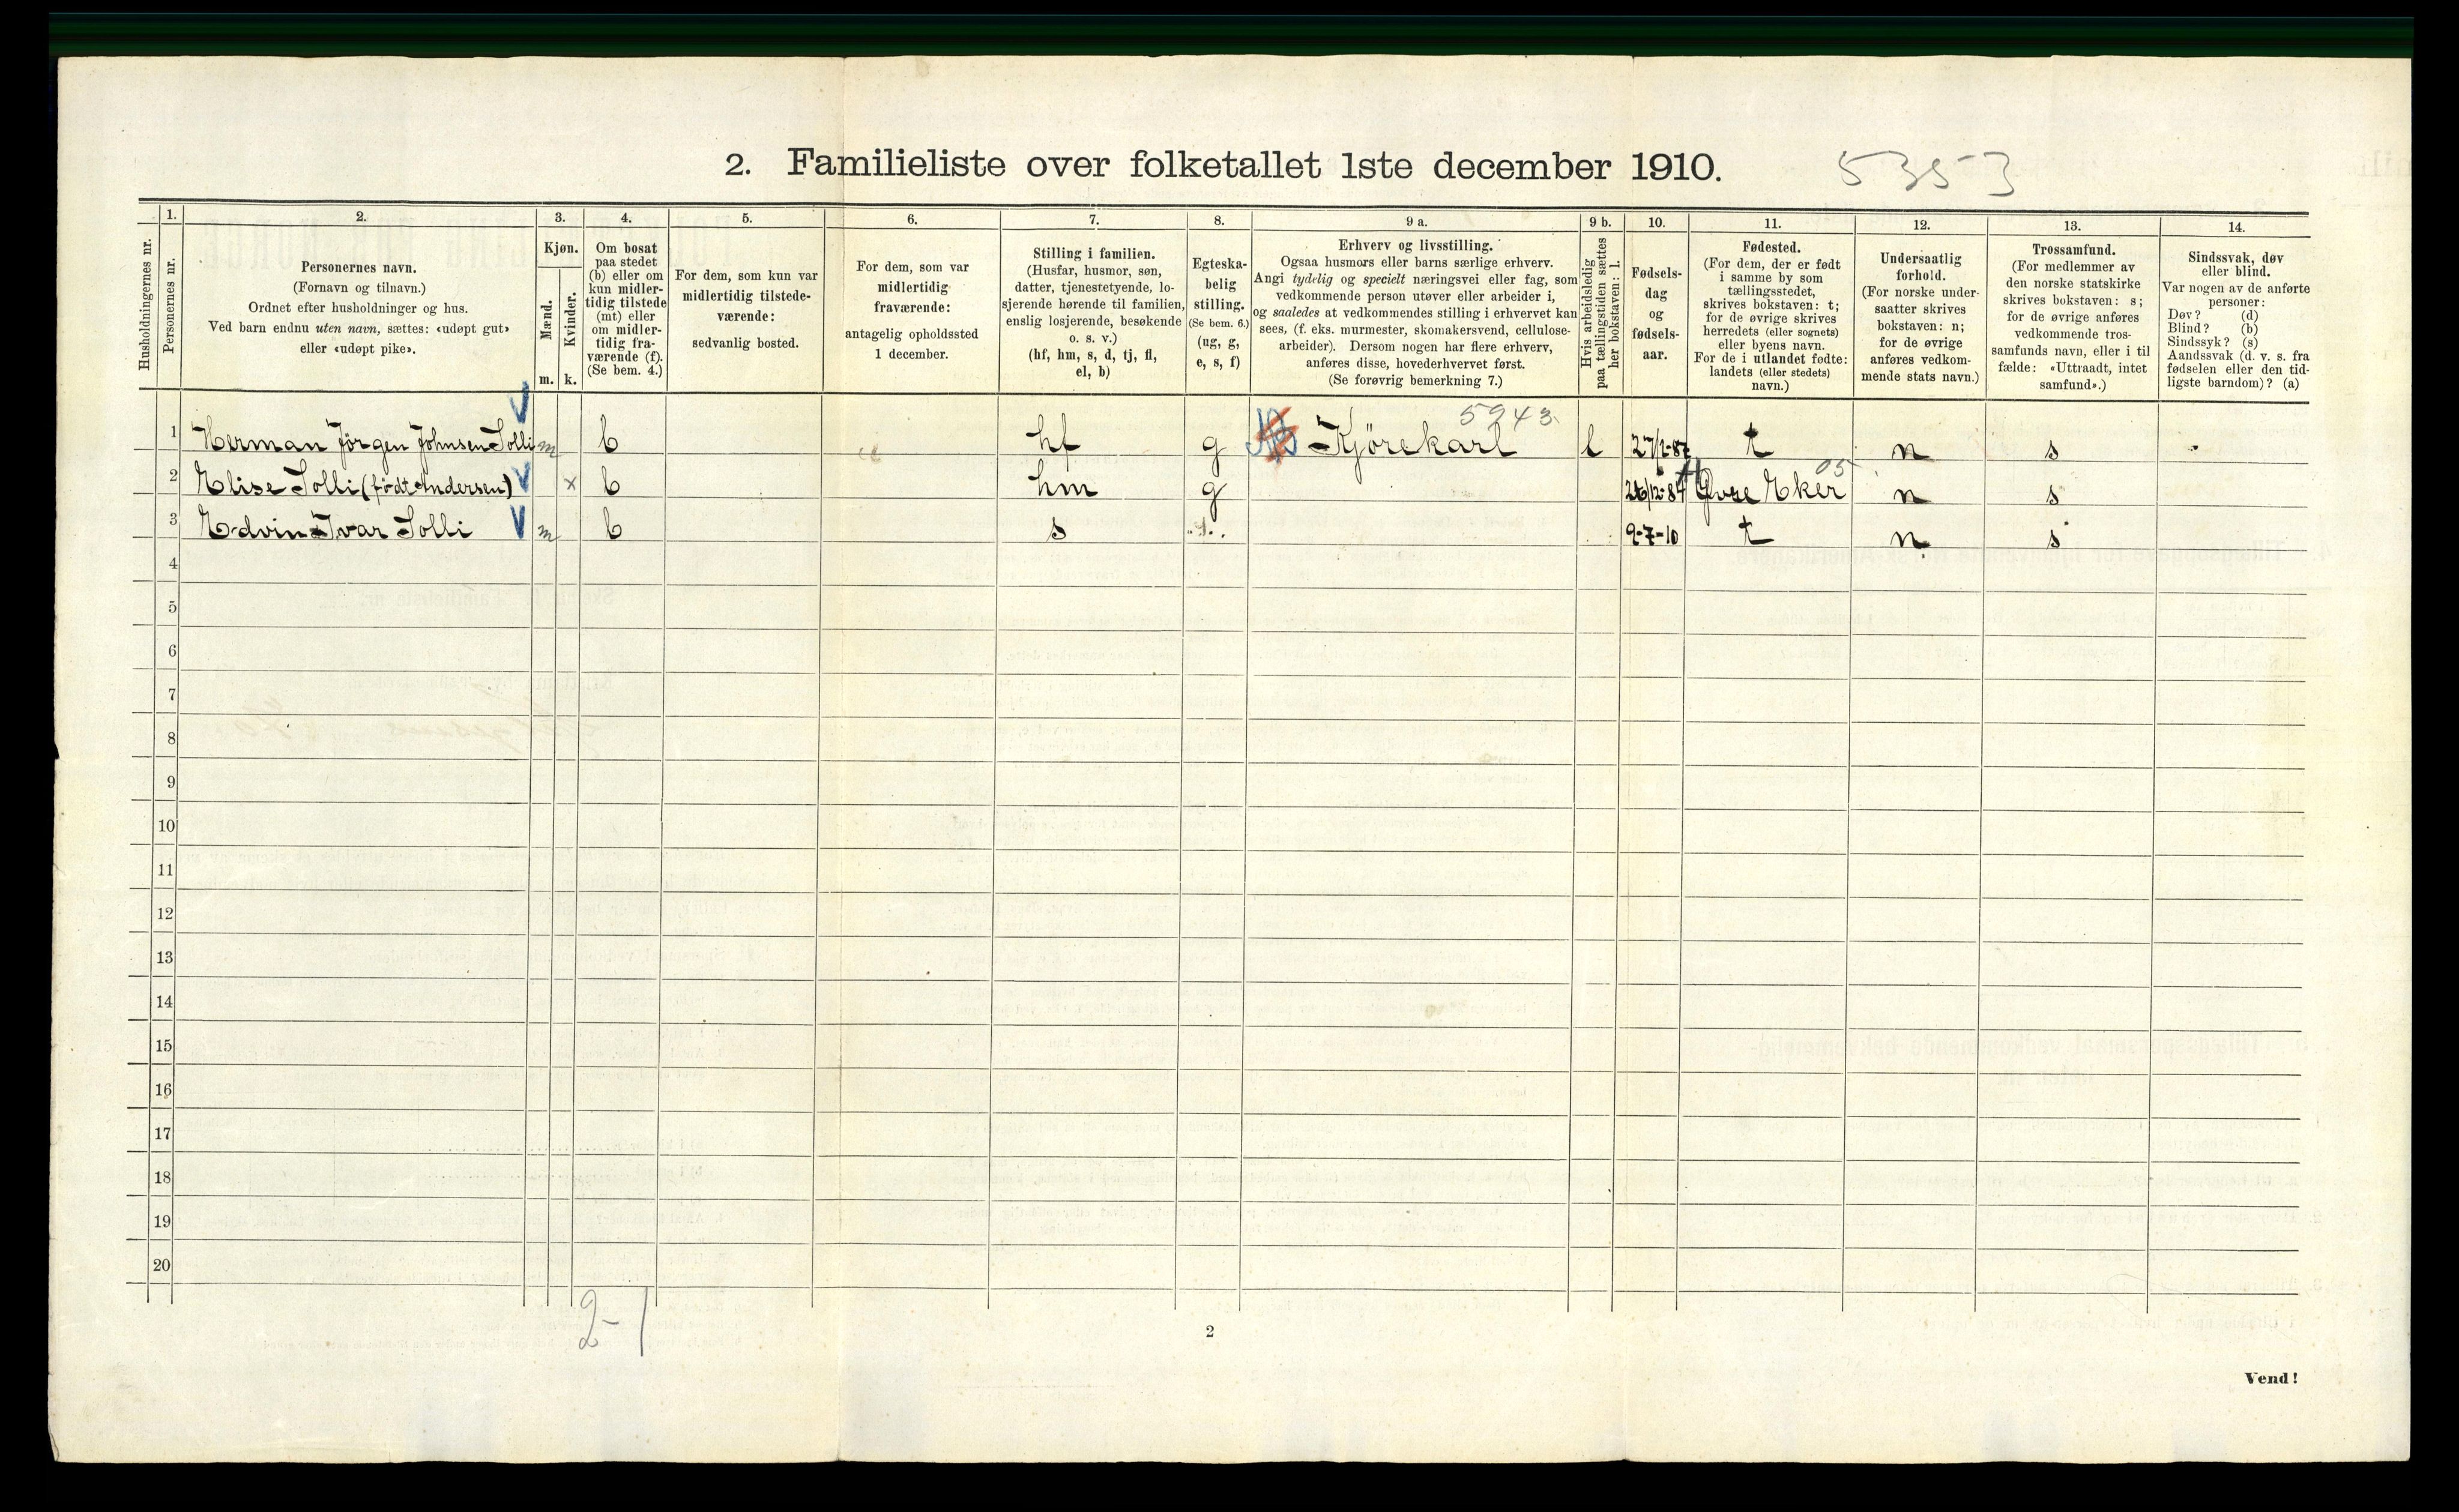 2. Familieliste over folketallet 1ste december 1910.
5353
Husholdningernes nr.
1.
Personernes nr.
2.
Personernes navn.
(Fornavn og tilnavn.)
Ordnet efter husholdninger og hus.
Ved barn endnu uten navn, sættes: «udøpt gut»
eller «udøpt pike».
3.
Kjøn.
Mænd.
Kvinder.
m. k.
4.
Om bosat
paa stedet
(b) eller om
kun midler-
tidig tilstede
(mt) eller
om midler-
tidig fra-
værende (f).
(Se bem. 4.)
5.
For dem, som kun var
midlertidig tilstede-
værende:
sedvanlig bosted.
6.
For dem, som var
midlertidig
fraværende:
antagelig opholdssted
1 december.
7.
Stilling i familien.
(Husfar, husmor, søn,
datter, tjenestetyende, lo-
sjerende hørende til familien,
enslig losjerende, besøkende
o. s. v.)
(hf, hm, s, d, tj, fl,
el, b)
8.
Egteska-
belig
stilling.
(Se bem. 6.)
(ug, g,
e, s, f)
9 a.
Erhverv og livsstilling.
Ogsaa husmors eller barns særlige erhverv.
Angi tydelig og specielt næringsvei eller fag, som
vedkommende person utøver eller arbeider i,
og saaledes at vedkommendes stilling i erhvervet kan
sees, (f. eks. murmester, skomakersvend, cellulose-
arbeider). Dersom nogen har flere erhverv,
anføres disse, hovederhvervet først.
(Se forøvrig bemerkning 7.)
9 b.
Hvis arbeidsledig
paa tællingstiden sættes
her bokstaven: l.
10.
Fødsels-
dag
og
fødsels-
aar.
11.
Fødested.
(For dem, der er født
i samme by som
tællingsstedet,
skrives bokstaven: t;
for de øvrige skrives
herredets (eller sognets)
eller byens navn.
For de i utlandet fødte:
landets (eller stedets)
navn.)
12.
Undersaatlig
forhold.
(For norske under-
saatter skrives
bokstaven: n;
for de øvrige
anføres vedkom-
mende stats navn.)
13.
Trossamfund.
(For medlemmer av
den norske statskirke
skrives bokstaven: s;
for de øvrige anføres
vedkommende tros-
samfunds navn, eller i til
fælde: «Uttraadt, intet
samfund».)
14.
Sindssvak, døv
eller blind.
Var nogen av de anførte
personer:
Døv? (d)
Blind? (b)
Sindssyk? (s)
Aandssvak (d. v. s. fra
fødselen eller den tid-
ligste barndom)? (a)
5943
1 Herman Jörgen Johnsen Solli m b hf g Kjörekarl l t n s
05
2 Elise Solli (født Andersen) x b hm g 26/12-84 Øvre Eker n s
3 Edvin Ivar Solli m b s 9-7-10 t n s
4
5
6
7
8
9
10
11
12
13
14
15
16
17
18
19
20
2-1
2
Vend!